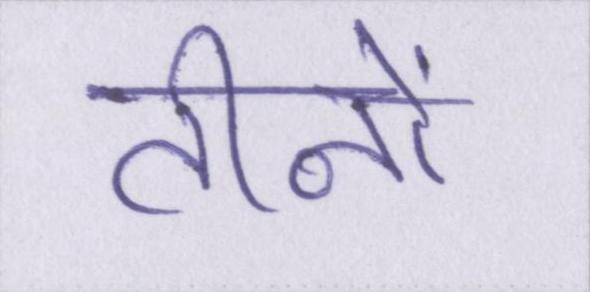 तीनों